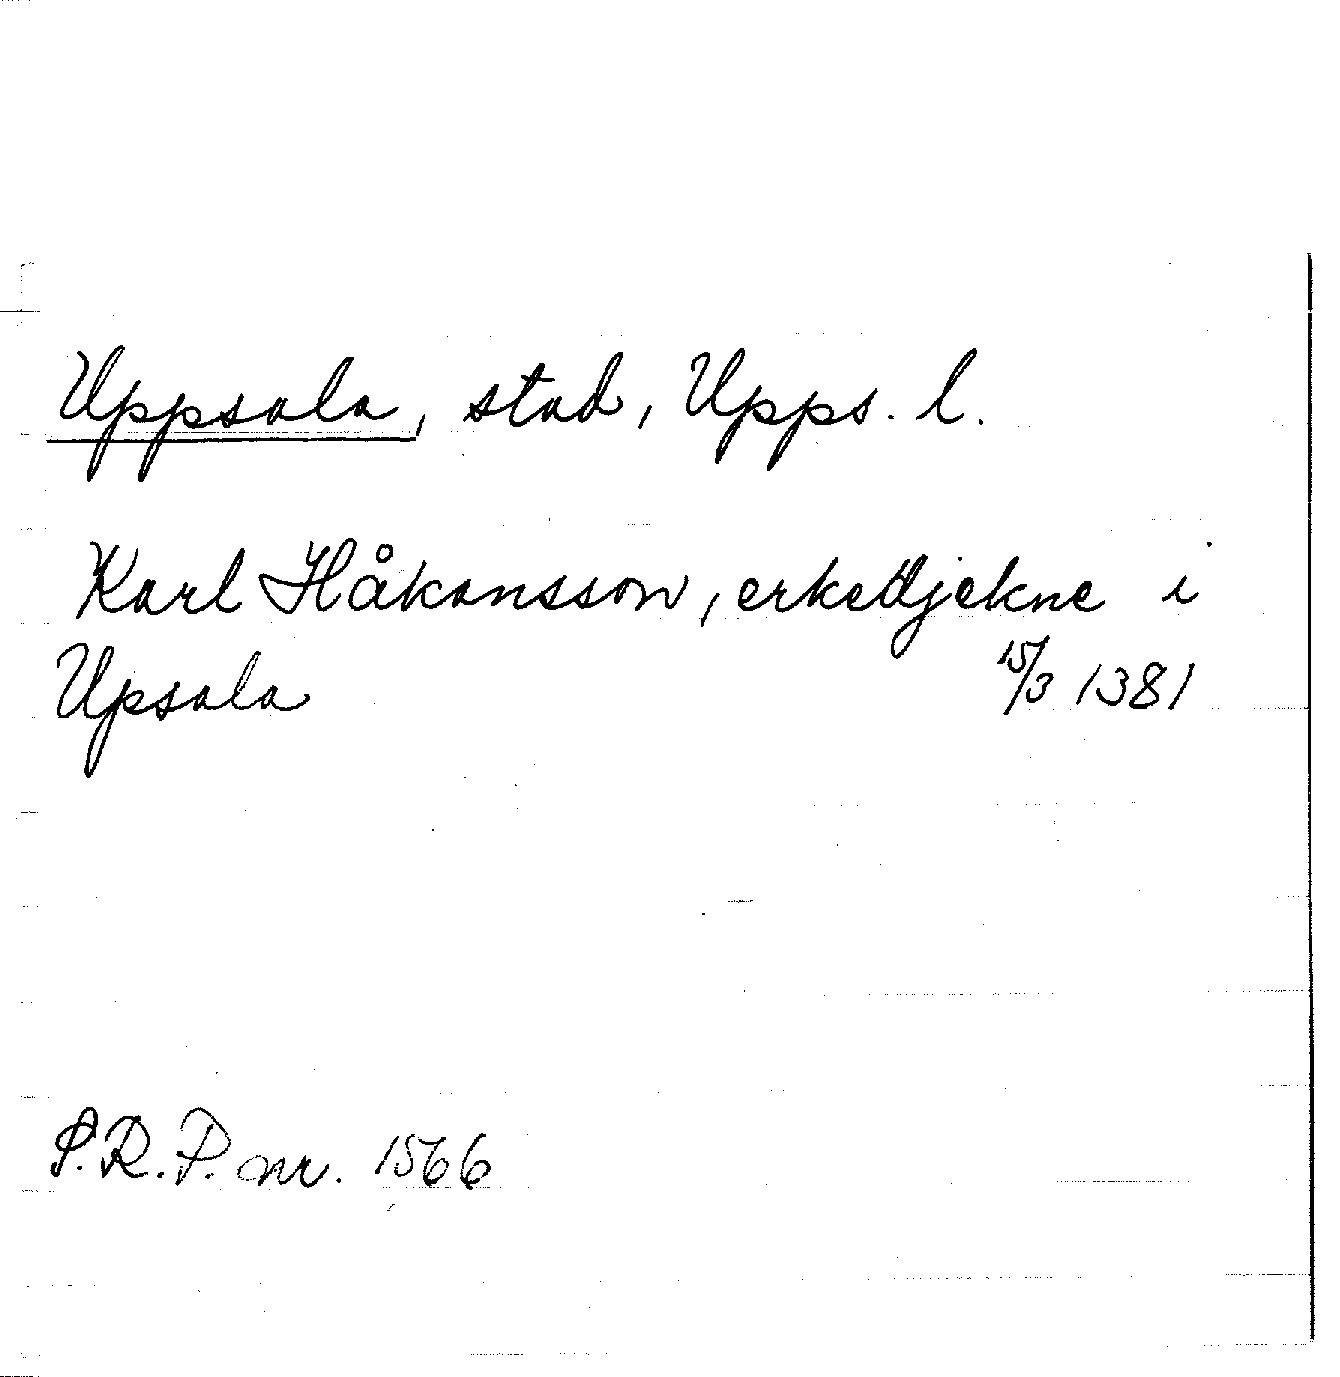 Uppsala, stad, Upps. l.
Karl Håkansson, erkedjekne i
Upsala 15/3 1381
S.R.P. nr. 1566